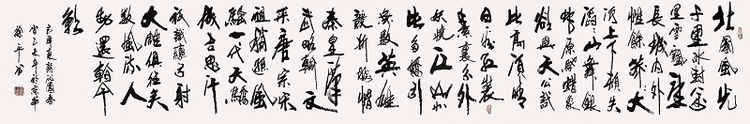 北國風光
千里冰封萬
里雪飄望
長城内外惟
餘莽莽大
河上下頓失
滔滔山舞銀
蛇原馳蠟象
欲與天公試
比高須晴
日看紅裝
素裹分外
妖嬈江山如
此多嬌引
無數英雄
競折腰惜
秦皇漢
武略輸文
采唐宗宋
祖稍遜風
騷一代天驕
成吉思汗
祇識彎弓射
大雕俱往矣
數風流人
物還看今
朝
毛澤東詞沁園春
雪乙未年於京華
徐平書